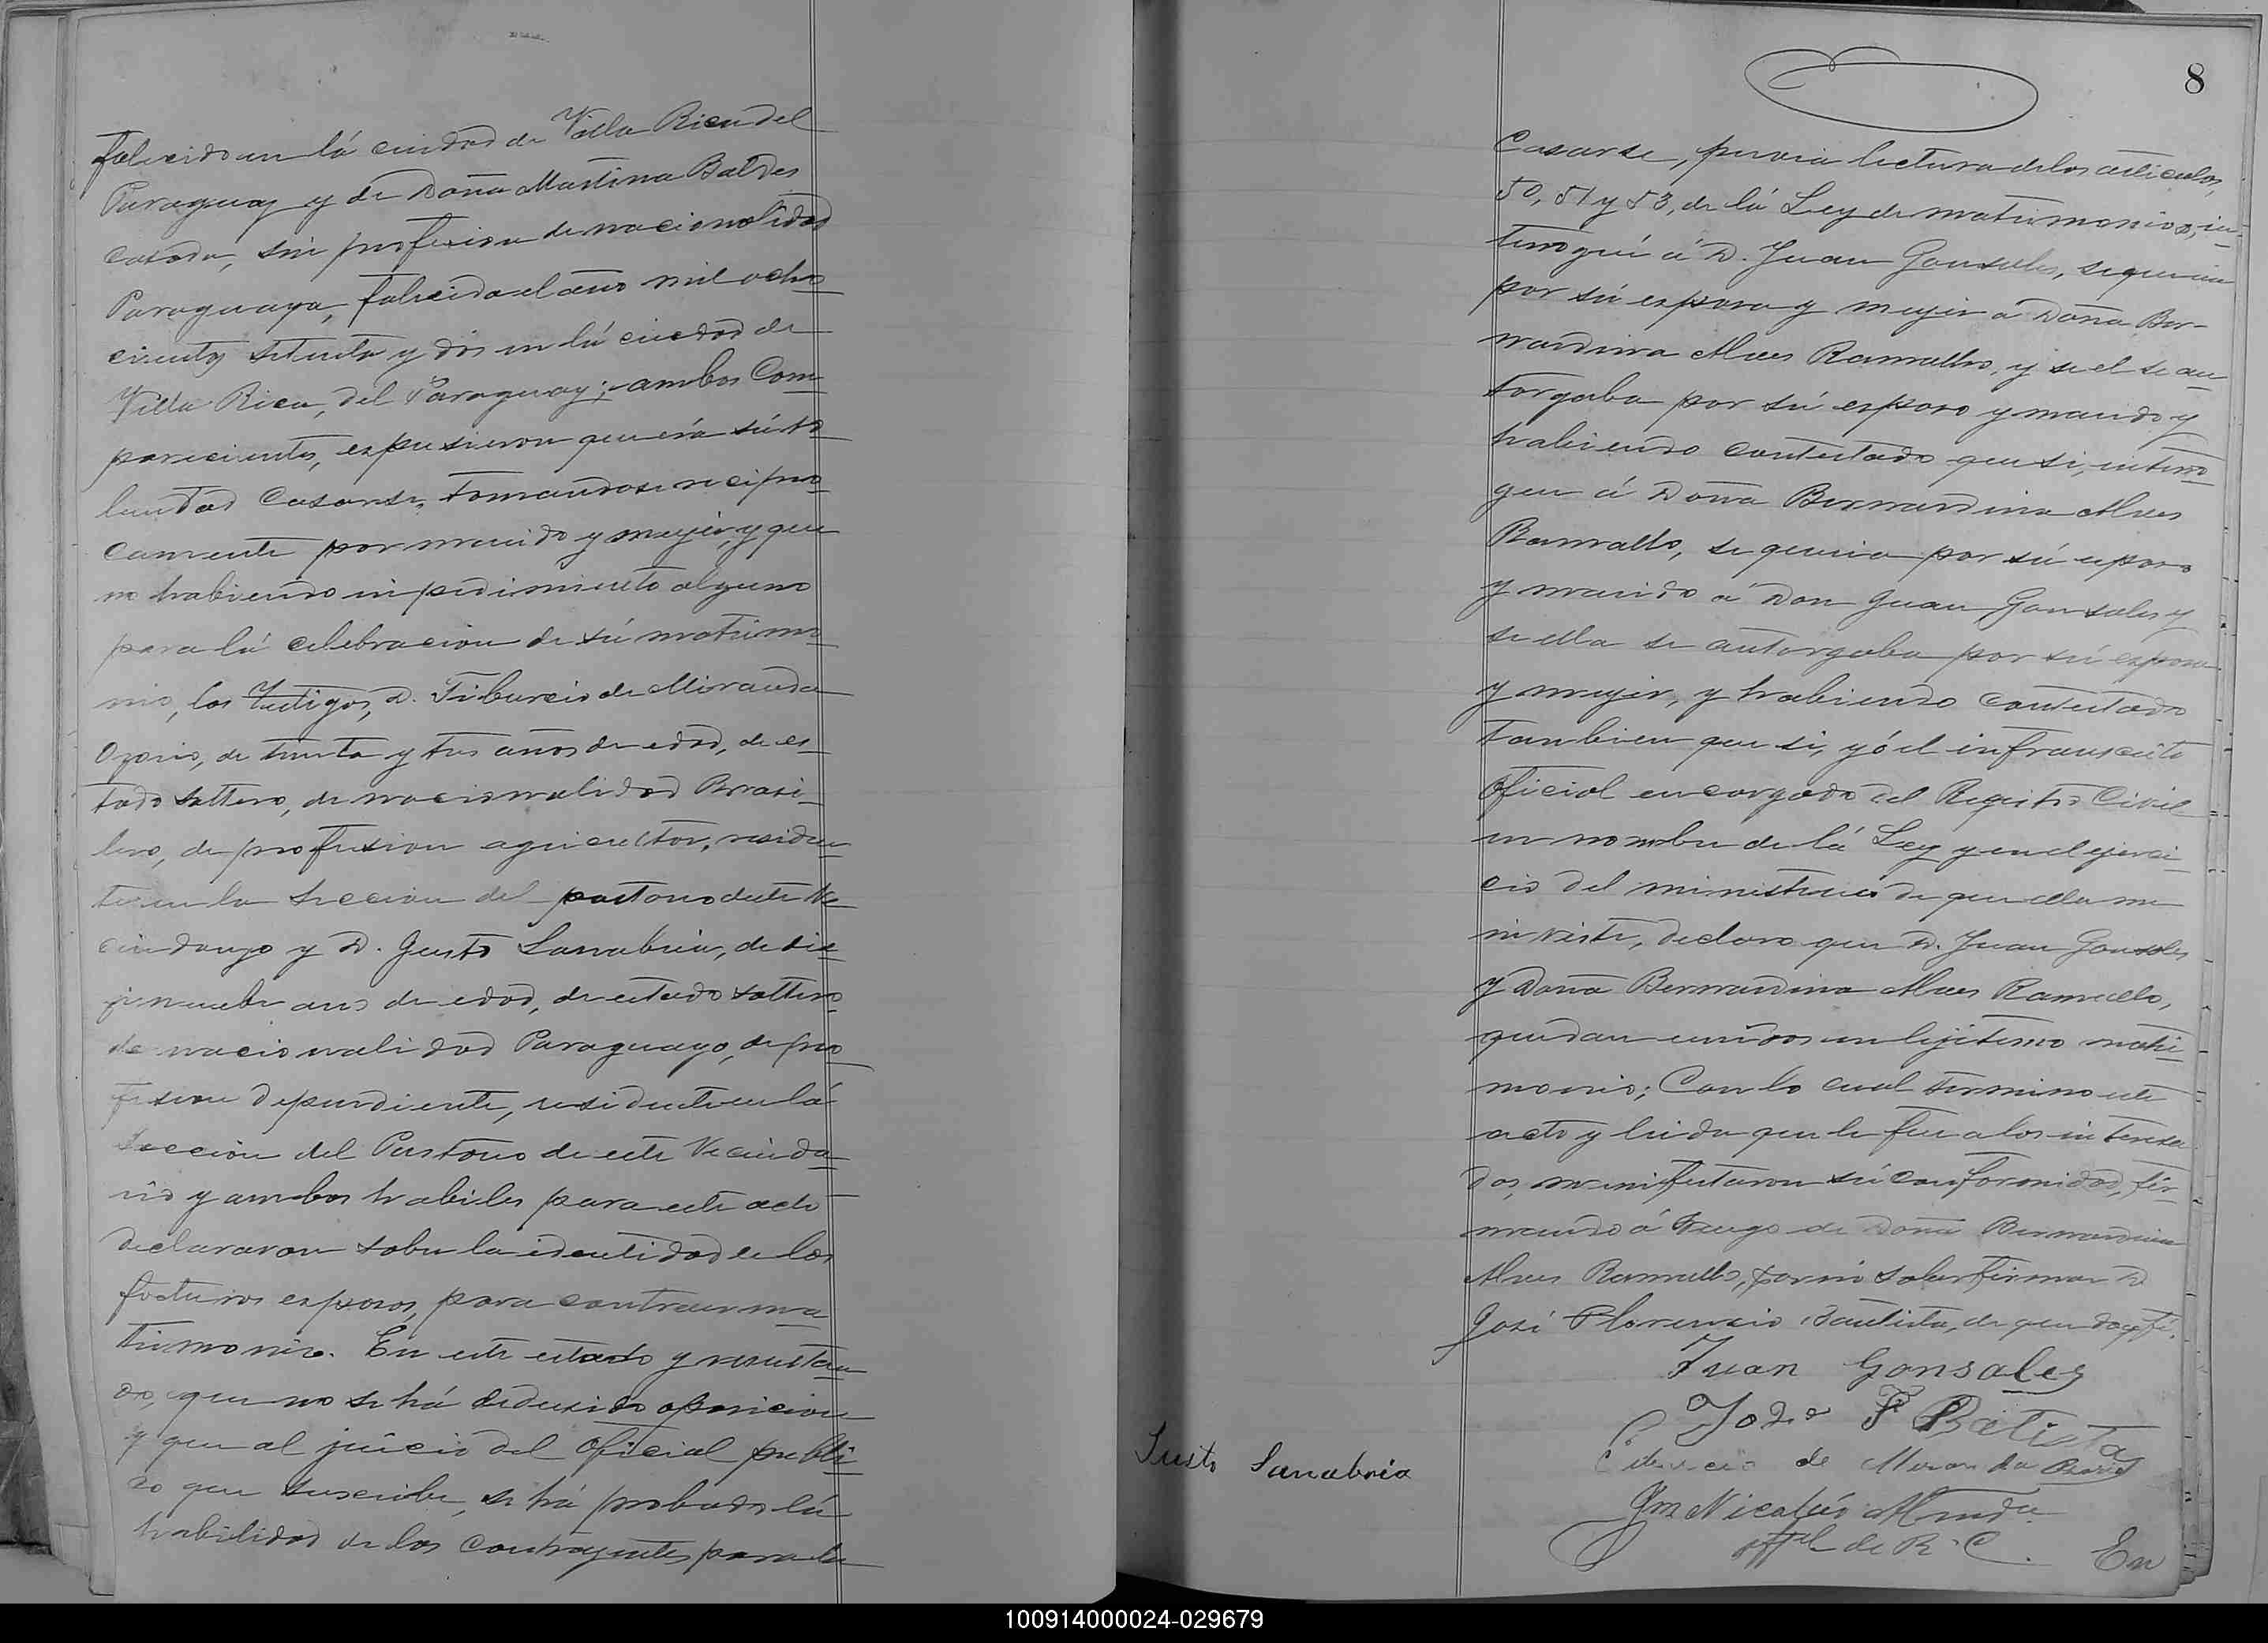 falecido en lá ciudad de Villa Rica del
Paraguay y de Doña Martina Baldes
casada, sin profesion de nacionalidad
Paraguaya, falecida el año mil ocho
cientos setenta y dos en lá ciudad de
Villa Rica, del Paraguay; ambos Com
parecientes, expusieron que era sú vo
luntad Casarse, tomandose recipro
camente por marido y mujer, y que
no habiendo inpedimiento alguno
para lá celebracion de sú matrimo
nio, los Testigos, D. Tiburcio de Miranda
Ozorio, de trenta y tres años de edad, de es
tado soltero, de nacionalidad Brasi
lero, de profesion agricultor, residen
te en la seccion del pastoreo deste Ve
cindario y D. Justo Sanabria, de die
sinuebe años de edad, de estado soltero
de nacionalidad Paraguayo, de pro
fesion dependiente, residente en lá
seccion del Pastoreo de este Vecinda
rio y ambos habiles para este acto
declararon sobre la identidad de los
foturos esposos, para contraer ma
trimonio. En este estado y resultan
do, que no se há dedusido oposicion
y que al juicio del Oficial publi
co que suscribe, se há probado lá
habilidad de los Contrayentes para
8
Casarse, previa lectura de los articulos,
50, 51 y 53, de lá Ley de matrimonios, in
terogué á D. Juan Gonsales, se queria
por sú esposa y mujer a Doña Ber-
nardina Alves Ramallo, y se el se au
torgaba por sú esposo y marido y
habiendo contestado que si, intero
gue á Doña Bernardina Alves
Ramallo, se queria por sú esposo
y marido a Don Juan Gonsales y
se ella se autorgaba por sú esposa
y mujer, y habiendo contestado
tanbien que si, yó el infranscrito
Oficial encargado del Registro Civil
en nombre de lá Ley y en el ejerci
cio del ministerio de que ella me
inviste, declaro que D. Juan Gonsales
y Doña Bernardina Alves Ramallo,
quedan unidos en lejitimo matri
monio; Con lo cual termino este
acto y leida que le fue a los interesa
dos, manifestaron sú conformidad, fir
mando á Ruego de Doña Bernardina
Alves Ramallo, por nó saber firmar D
José Florencio Bautista, de que doy fé.
Juan Gonsales
José F Batista
Justo Sanabria
de Miranda
Nicolás
offel de R. C.
En
100914000024-029679